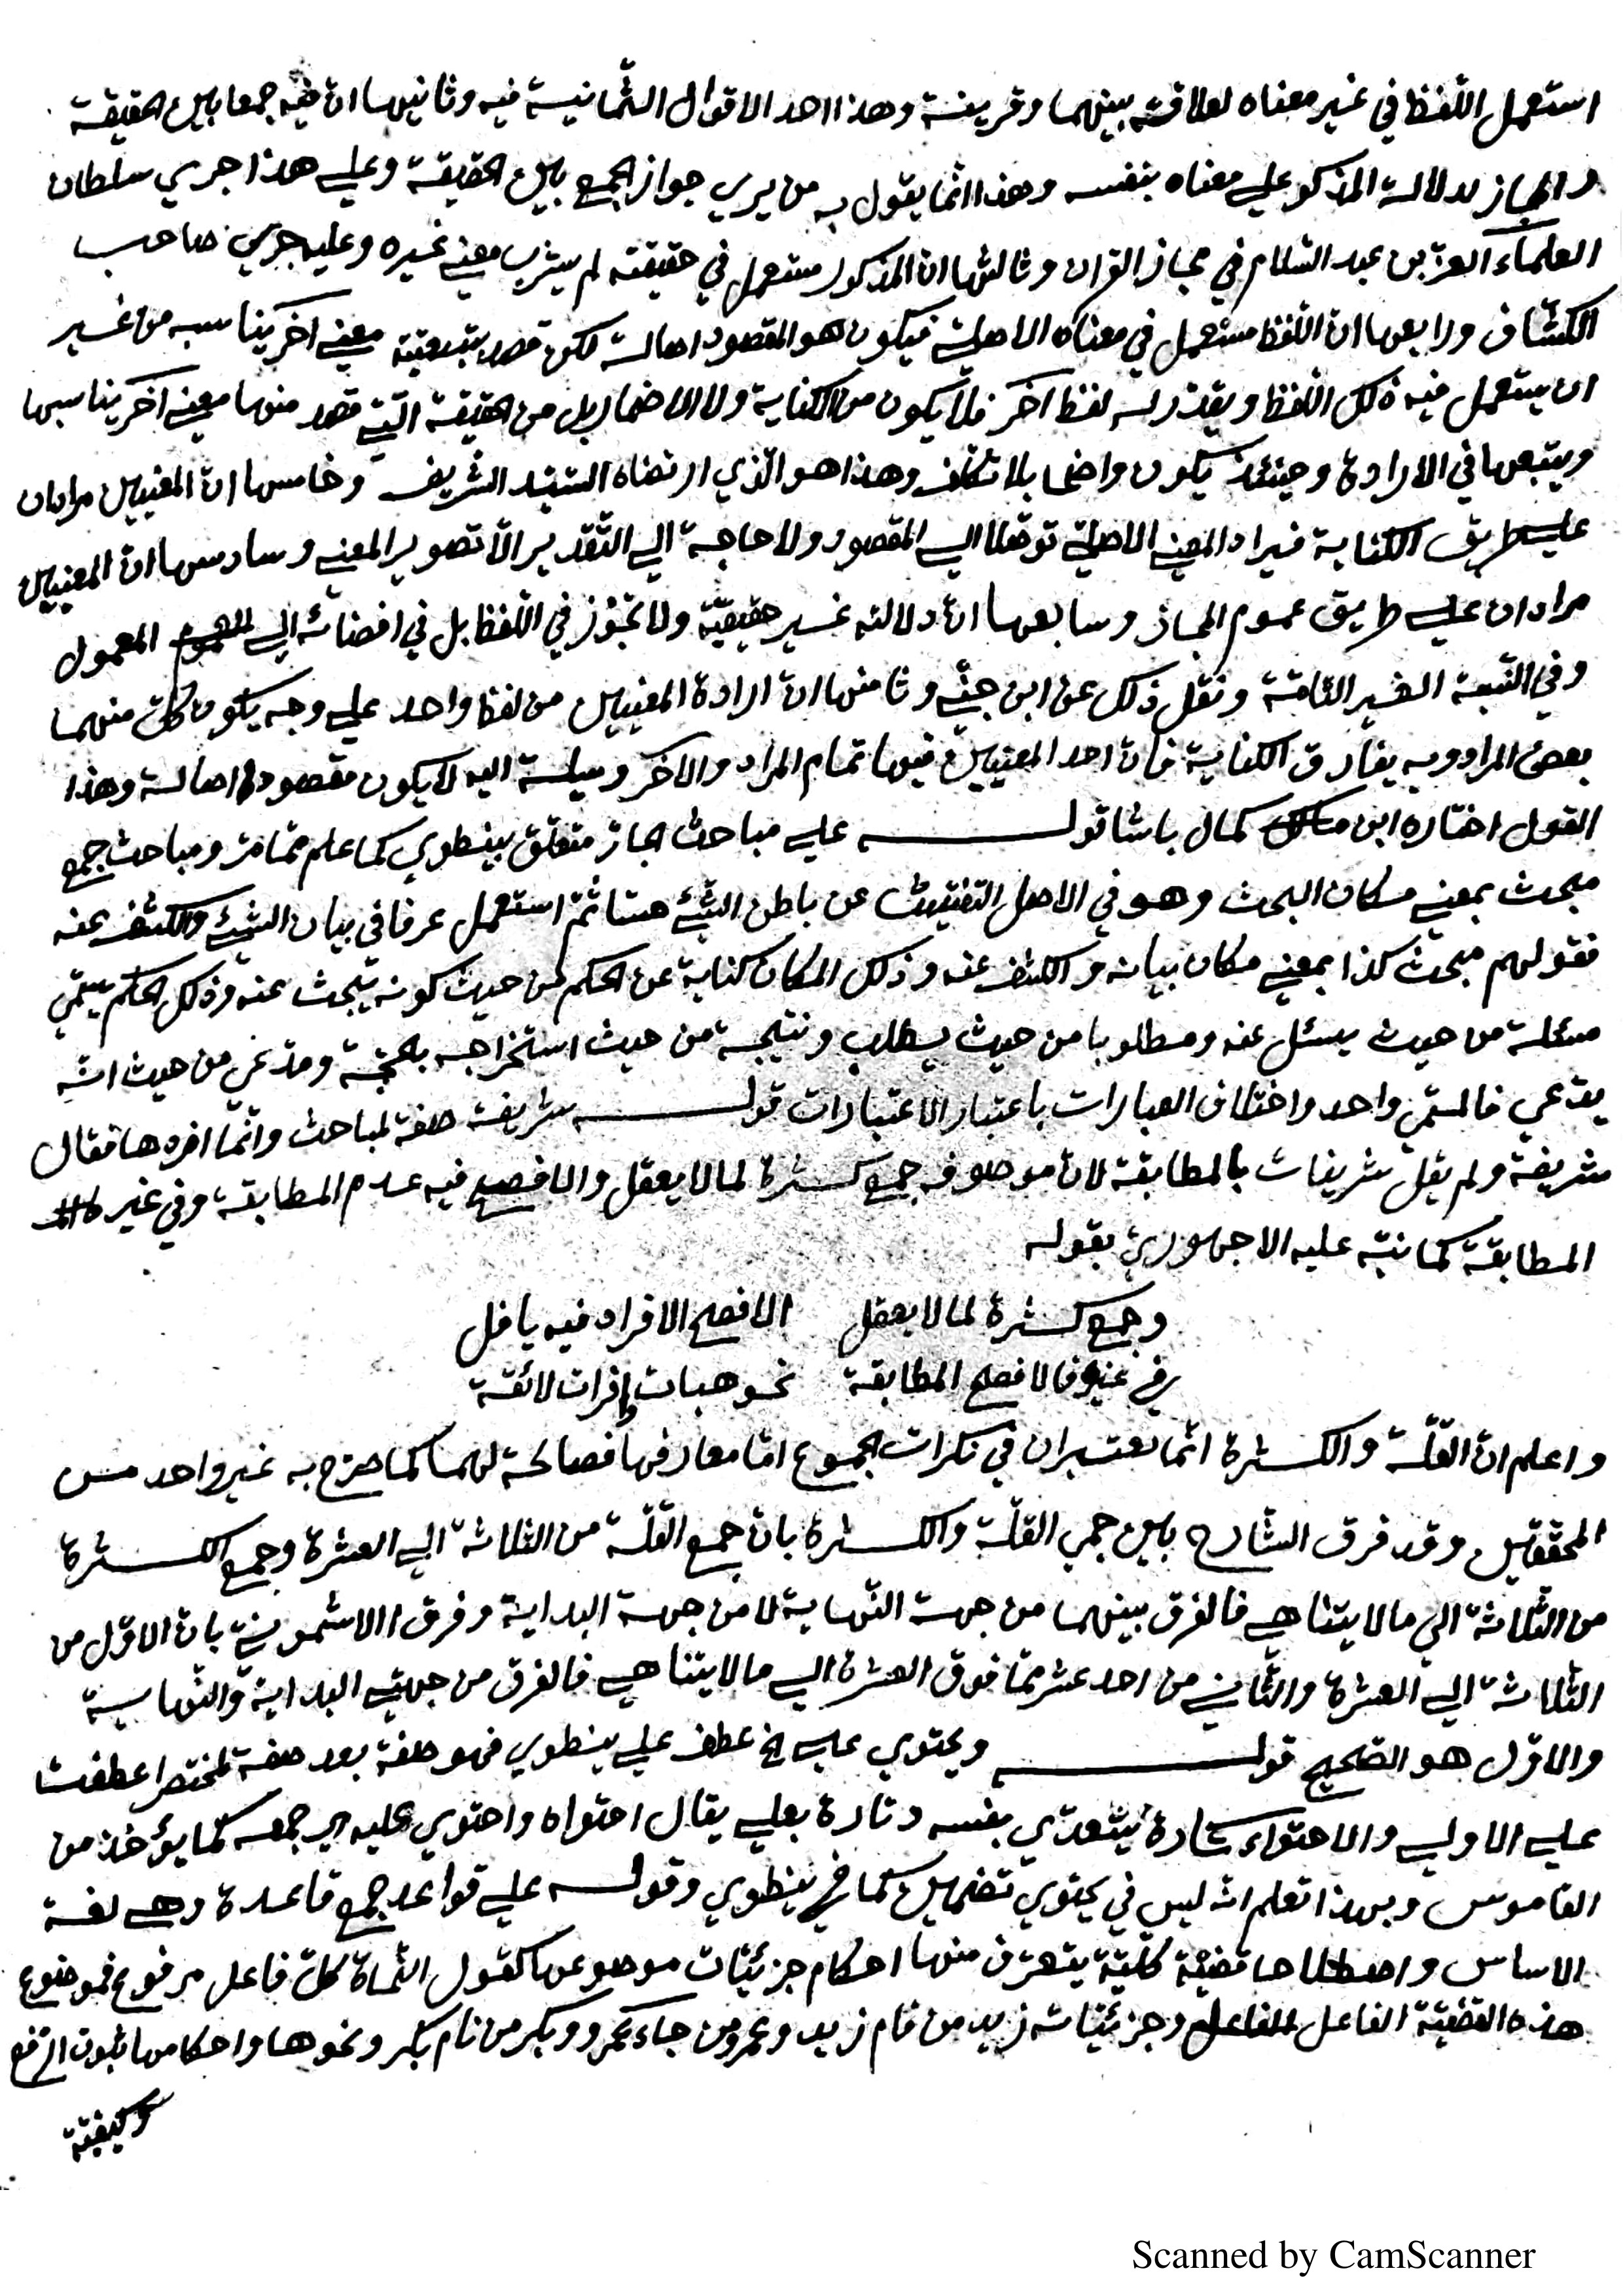 استعمل اللّفظ في غير معناه لعلاقة بينهما وقرينة وهذا احد الاقوال الثّمانية فيه وثانيها انّ فيه جمعا بين الحقيقة
والمجاز لدلالة المذكور علي معناه بنفسه وهذا انّما يقول به من يري جواز الجمع بين الحقيقة وعلي هذا جري سلطان
العلماء العزّ بن عبد السّلام في مجاز القران وثالثها ان المذكور مستعمل في حقيقته لم يشرب معني غيره وعليه جري صاحب
الكشّاف ورابعها انّ اللّفظ مستعمل في معناه الاصليّ فيكون هو المقصود اصالة لكن قصد بتبعيّته معني اخر يناسبه من غير
ان يستعمل فيه ذلك اللّفظ ويقدّر له لفظ آخر فلا يكون من الكناية ولا الاضمار بل من الحقيقة الّتي قصد منها معني آخر يناسبها
ويتبعها في الارادة وحينئذ يكون واضحا بلا تكلّف وهذا هو الّذي ارتضاه السّيّد الشّريف وخامسها انّ المعنيين مرادان
علي طريق الكناية فيراد المعني الاصليّ توصّلا الي المقصود ولا حاجة الي التّقدير الّا تصوير المعني وسادسها انّ المعنيين
مرادان علي طريق عموم المجاز وسابعها انّ دلالته غير حقيقيّة ولا تجوّز في اللّفظ بل في افضائه الي المعمول
وفي النّسبة الغير التّامّة ونقل ذلك عن ابن جنّي وثامنها انّ ارادة المعنيين من لفظ واحد علي وجه يكون كلّ منهما
بعض المراد وبه يفارق الكناية فانّ احد المعنيين فيها تمام المراد والآخر وسيلة اليه لا يكون مقصودا اصالة وهذا
القول اختاره ابن كمال باشا قوله علي مباحث الجار متعلّق بينطوي كما علم ممّا مرّ ومباحث جمع
مبحث بمعني مكان البحث وهو في الاصل التّفتيش عن باطن الشّيء حسّا ثمّ استعمل عرفا في بيان الشّيء والكشف عنه
فقولهم مبحث كذا بمعني مكان بيانه والكشف عنه وذلك المكان كناية عن الحكم من حيث كونه يبحث عنه وذلك الحكم يسمّي
مسئلة من حيث يسئل عنه ومطلوبا من حيث يطلب ونتيجة من حيث استخراجه بالحجّة ومدّعي من حيث انّه
يدّعي فالمسمّي واحد واختلاف العبارات باعتبار الاعتبارات قوله شريفة صفة لمباحث وانّما افردها فقال
شريفة ولم يقل شريفات بالمطابقة لانّ موصوفه جمع كثرة لما لا يعقل والافصح فيه عدم المطابقة وفي غيره
المطابقة كما نبّه عليه الاجهوريّ بقوله
وجمع كثرة لما لا يعقل الافصح الافراد فيه يا فل
وفي غيره فالافصح المطابقة نحو هبات وافرات لائقة
واعلم انّ القلّة والكثرة انّما يعتبران في نكرات الجموع امّا معارفها فصالحة لهما كما صرّح به غير واحد من
المحقّقين وقد فرق الشّارح بين جمعي القلّة والكثرة بانّ جمع القلّة من الثلاثة الي العشرة وجمع الكثرة
من الثّلاثة الي ما لا يتناهي فالفرق بينهما من جهة النّهاية لا من جهة البداية وفرق الاشمونيّ بانّ الاوّل من
الثّلاثة الي العشرة والثّاني من احد عشر ممّا فوق العشرة الي ما لا يتناهي فالفرق من جهتي البداية والنّهاية
والاوّل هو الصّحيح قوله ويحتوي علي الخ عطف علي ينطوي فهو صفة بعد صفة لمختصر اعطفت
علي الاولي والاحتواء تارة يتعدّي بنفسه وتارة بعلي يقال احتواه واحتوي عليه اي جمعه كما يؤخذ من
القاموس وبهذا تعلم انّه ليس في يحتوي تضمين كما في ينطوي وقوله علي قواعد جمع قاعدة وهي لغة
الاساس واصطلاحا قضيّة كلّيّة يتعرّف منها احكام جزئيّات موضوعها كقول النّحاة كلّ فاعل مرفوع فموضوع
هذه القضيّة الفاعل وجزئيّاته زيد من قام زيد وعمرو من جاء عمرو وبكر من نام بكر ونحوها واحكامها ثبوت الرّفع
وكيفيّة
Scanned by CamScanner